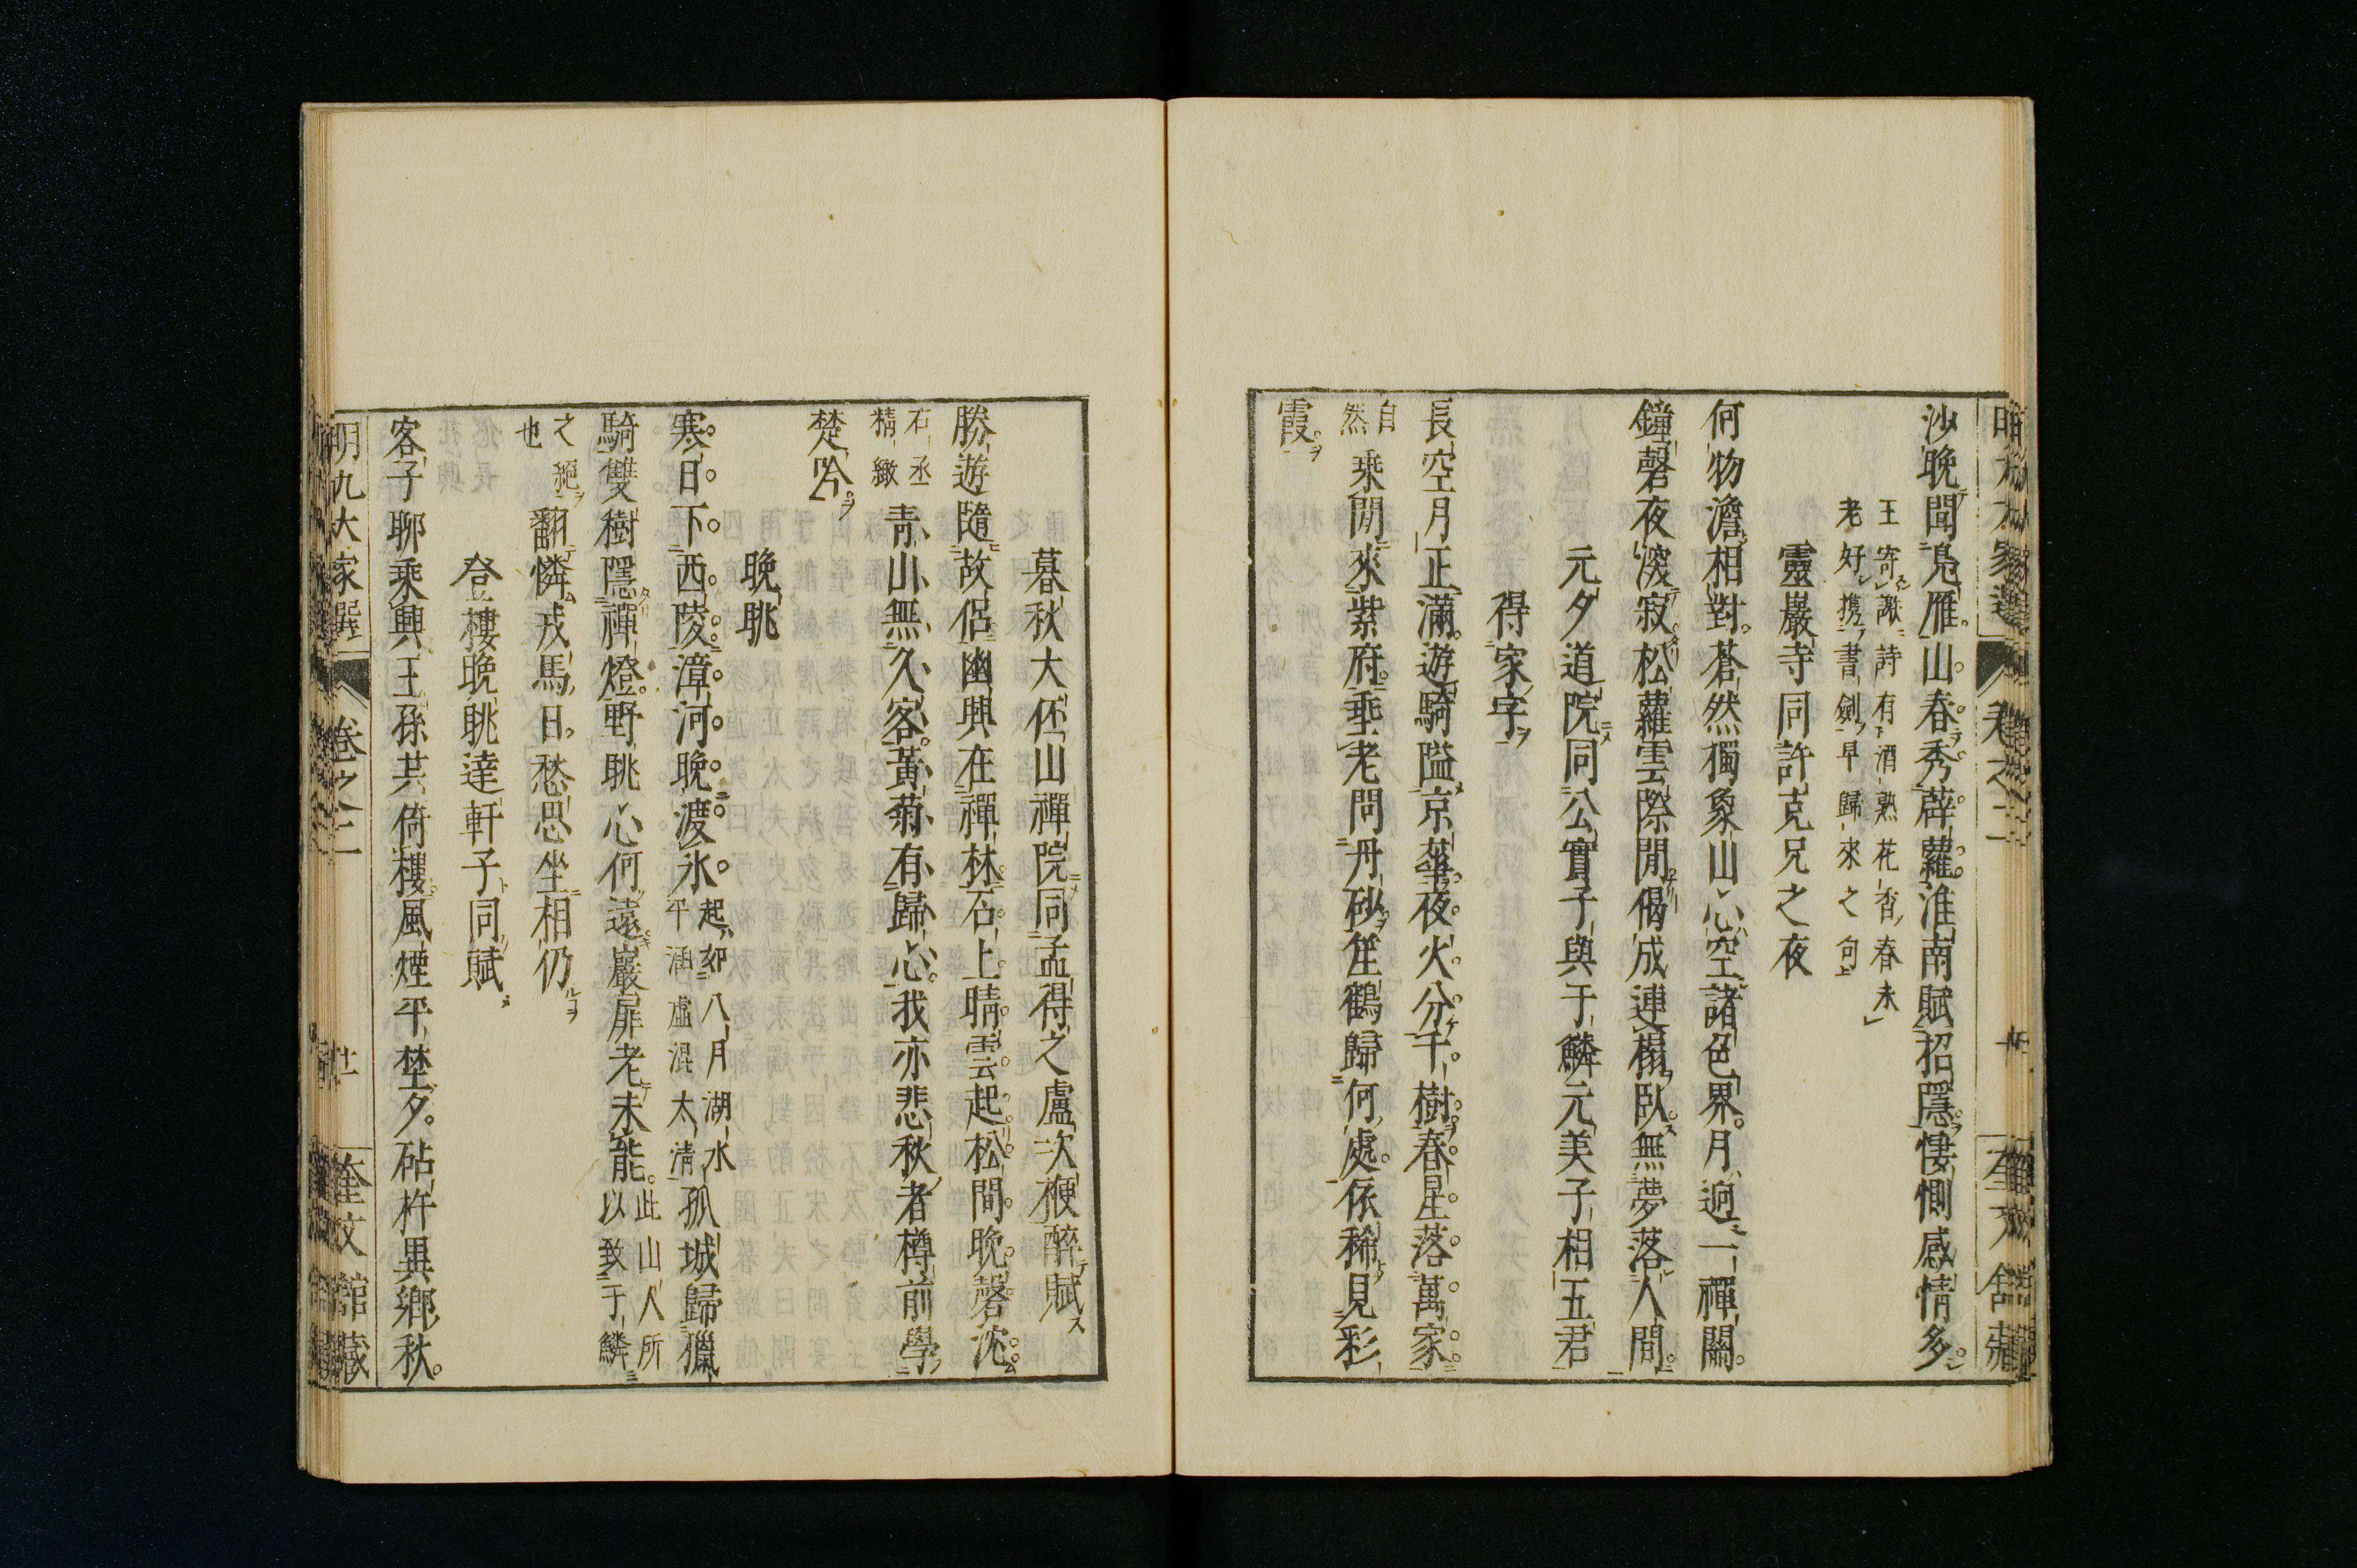 沙晩聞鳬雁山春秀薜蘿淮南賦招隱悽惻感情多
王寄謝詩有酒熟花香春未
老好携書劍早歸來之句
靈巖寺同許克兄之夜
何物澹相對蒼然獨象山心空諸色界月逈一禪關
鐘磬夜深寂松蘿雲際閒偈成連榻臥無夢落人間
元夕道院同公實子與于鱗元美子相五君
得家字
長空月正滿遊騎隘京華夜火分千樹春星落萬家
自然
乗閒來紫府垂老問丹砂笙鶴歸何處依稀見彩
霞
暮秋大伾山禪院同孟得之盧次楩醉賦
勝遊隨故侶幽興在禪林石上晴雲起松間晩磬沈
石丞
精緻
青山無久客黃菊有歸心我亦悲秋者樽前學
楚吟
晩眺
寒日下西陵漳河晩渡氷
起卽八月湖水
平涵虛混太淸
孤城歸獵
騎雙樹隱禪燈野眺心何遠巖扉老未能
此山人所
以致于鱗
之絕
也
翻憐戎馬日愁思坐相仍
登樓晩眺達軒子同賦
客子聊乗興王孫共倚樓風煙平埜夕砧杵異鄕秋
明九大家選
卷之二
奎文館藏